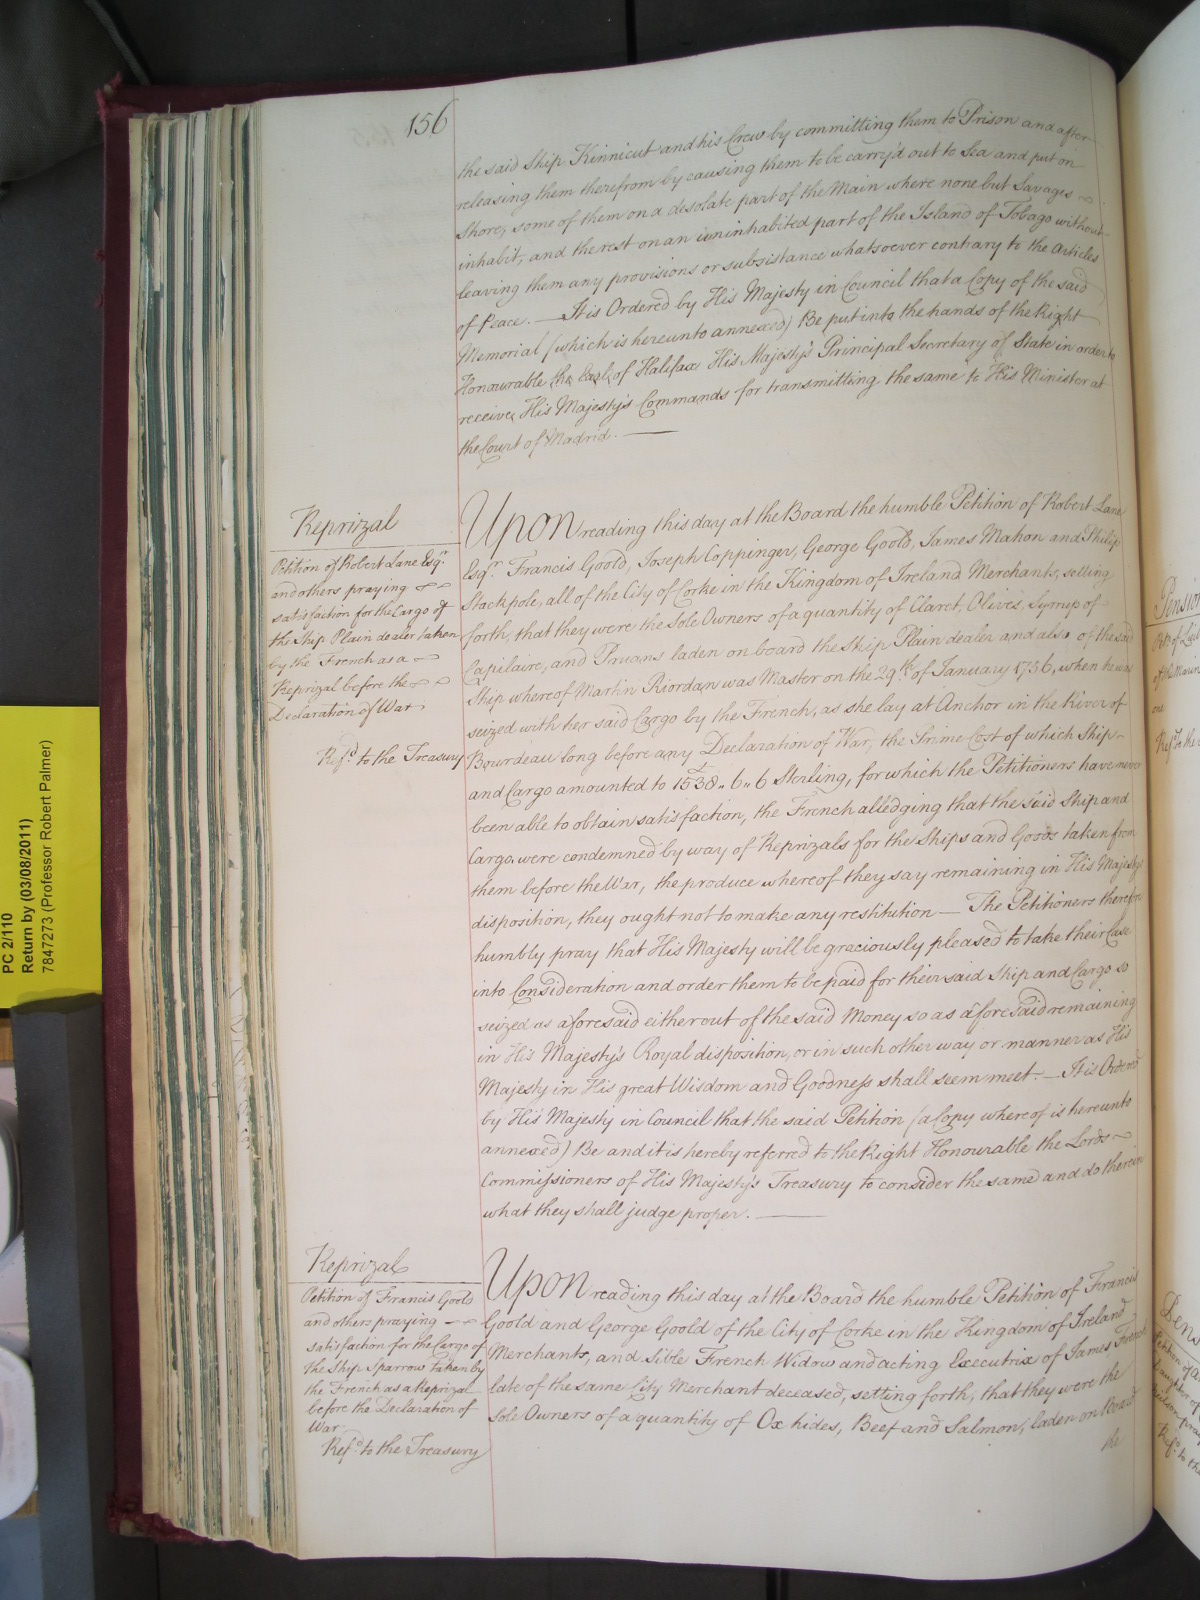 156
the said Ship Kinnicut and his Crew by committing them to Prison and after
releasing them therefrom by causing them to be carry'd out to Sea and put on
Shore, some of them on a desolate part of the Main where none but Savages
inhabit, and the rest on an uninhabited part of the Island of Tobago without
leaving them any provisions or subsistance whatsoever contrary to the Articles
of Peace. — It is Ordered by His Majesty in Council that a Copy of the said
Memorial (which is hereunto annexed) Be put into the hands of the Right
Honourable the Earl of Halifax His Majesty's Principal Secretary of State in order to
receive His Majesty's Commands for transmitting the same to His Minister at
the Court of Madrid. —
Reprizal
Petition of Robert Lane Esqr.
and others praying
satisfaction for the Cargo of
the Ship Plain dealer taken
by the French as a
Reprizal before the
Declaration of War
Refd. to the Treasury
Upon reading this day at the Board the humble Petition of Robert Lane
Esqr. Francis Goold, Joseph Coppinger, George Goold, James Mahon and Philip
Stackpole, all of the City of Corke in the Kingdom of Ireland Merchants, setting
forth, that they were the Sole Owners of a quantity of Claret, Olives, Syrup of
Capilaire, and Pruans laden on board the Ship Plain dealer and also of the said
Ship whereof Martin Riordan was Master on the 29th. of January 1756, when he was
seized with her said Cargo by the French, as she lay at Anchor in the River of
Bourdeau long before any Declaration of War, the Prime Cost of which Ship
and Cargo amounted to £1538..6..6 Sterling, for which the Petitioners have never
been able to obtain satisfaction, the French alledging that the said Ship and
Cargo were condemned by way of Reprizals for the Ships and Goods taken from
them before the War, the produce whereof they say remaining in His Majesty's
disposition, they ought not to make any restitution — The Petitioners therefore
humbly pray that His Majesty will be graciously pleased to take their Case
into Consideration and order them to be paid for their said Ship and Cargo so
seized as aforesaid either out of the said Money so as aforesaid remaining
in His Majesty's Royal disposition, or in such other way or manner as His
Majesty in His great Wisdom and Goodness shall seem meet. — It is Ordered
by His Majesty in Council that the said Petition (a Copy whereof is hereunto
annexed) Be and it is hereby referred to the Right Honourable the Lords
Commissioners of His Majesty's Treasury to consider the same and do therein
what they shall judge proper. —
Reprizal
Petition of Francis Goold
and others praying
satisfaction for the Cargo of
the Ship Sparrow taken by
the French as a Reprizal
before the Declaration of
War
Refd. to the Treasury
Upon reading this day at the Board the humble Petition of Francis
Goold and George Goold of the City of Corke in the Kingdom of Ireland
Merchants, and Sible French Widow and acting Executrix of James French
late of the same City Merchant deceased, setting forth, that they were the
Sole Owners of a quantity of Ox hides, Beef and Salmon, laden on Board
the
PC 2/110
Return by (03/08/2011)
7847273 (Professor Robert Palmer)